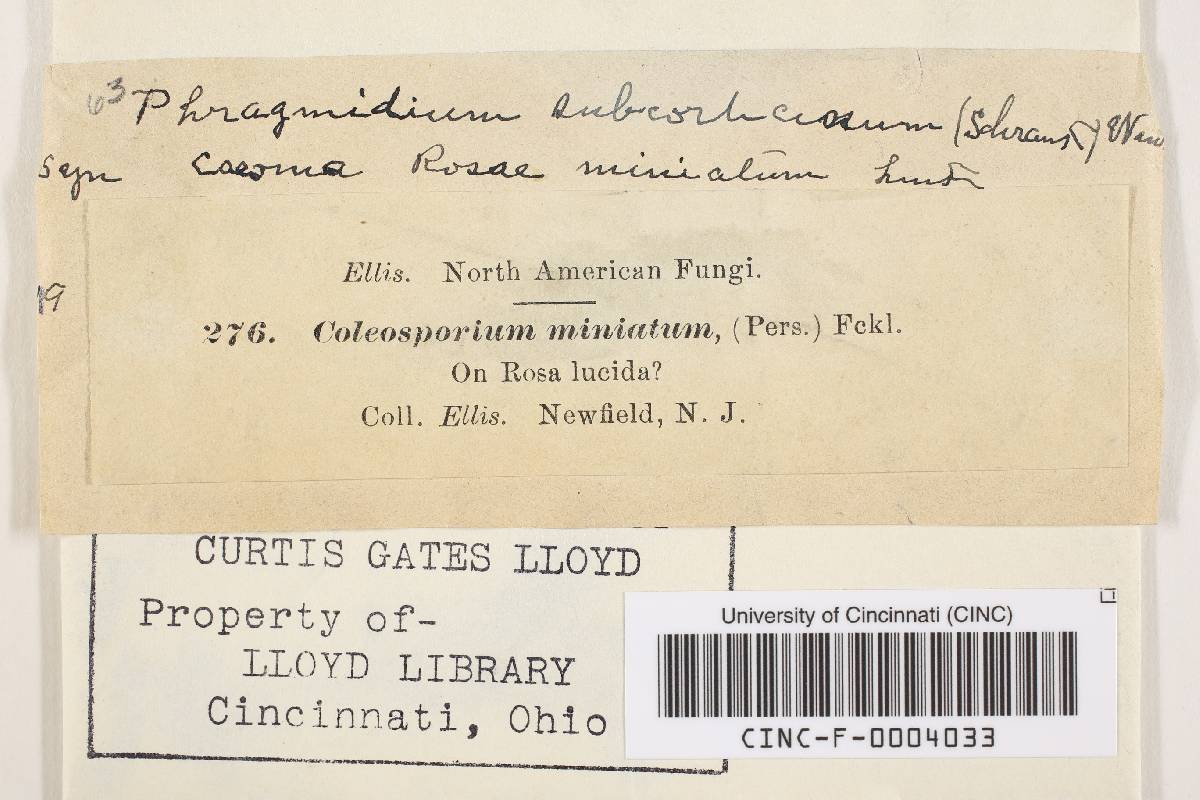 63 Phragmidium subcorticinum (Schrank) Win
syn Caeoma Rosae miniatum
Ellis. North American Fungi.
276. Coleosporium miniatum, (Pers.) Fckl.
On Rosa lucida?
Coll. Ellis. Newfield, N. J.
CURTIS GATES LLOYD
Property of-
LLOYD LIBRARY
Cincinnati, Ohio
University of Cincinnati (CINC)
CINC-F-0004033